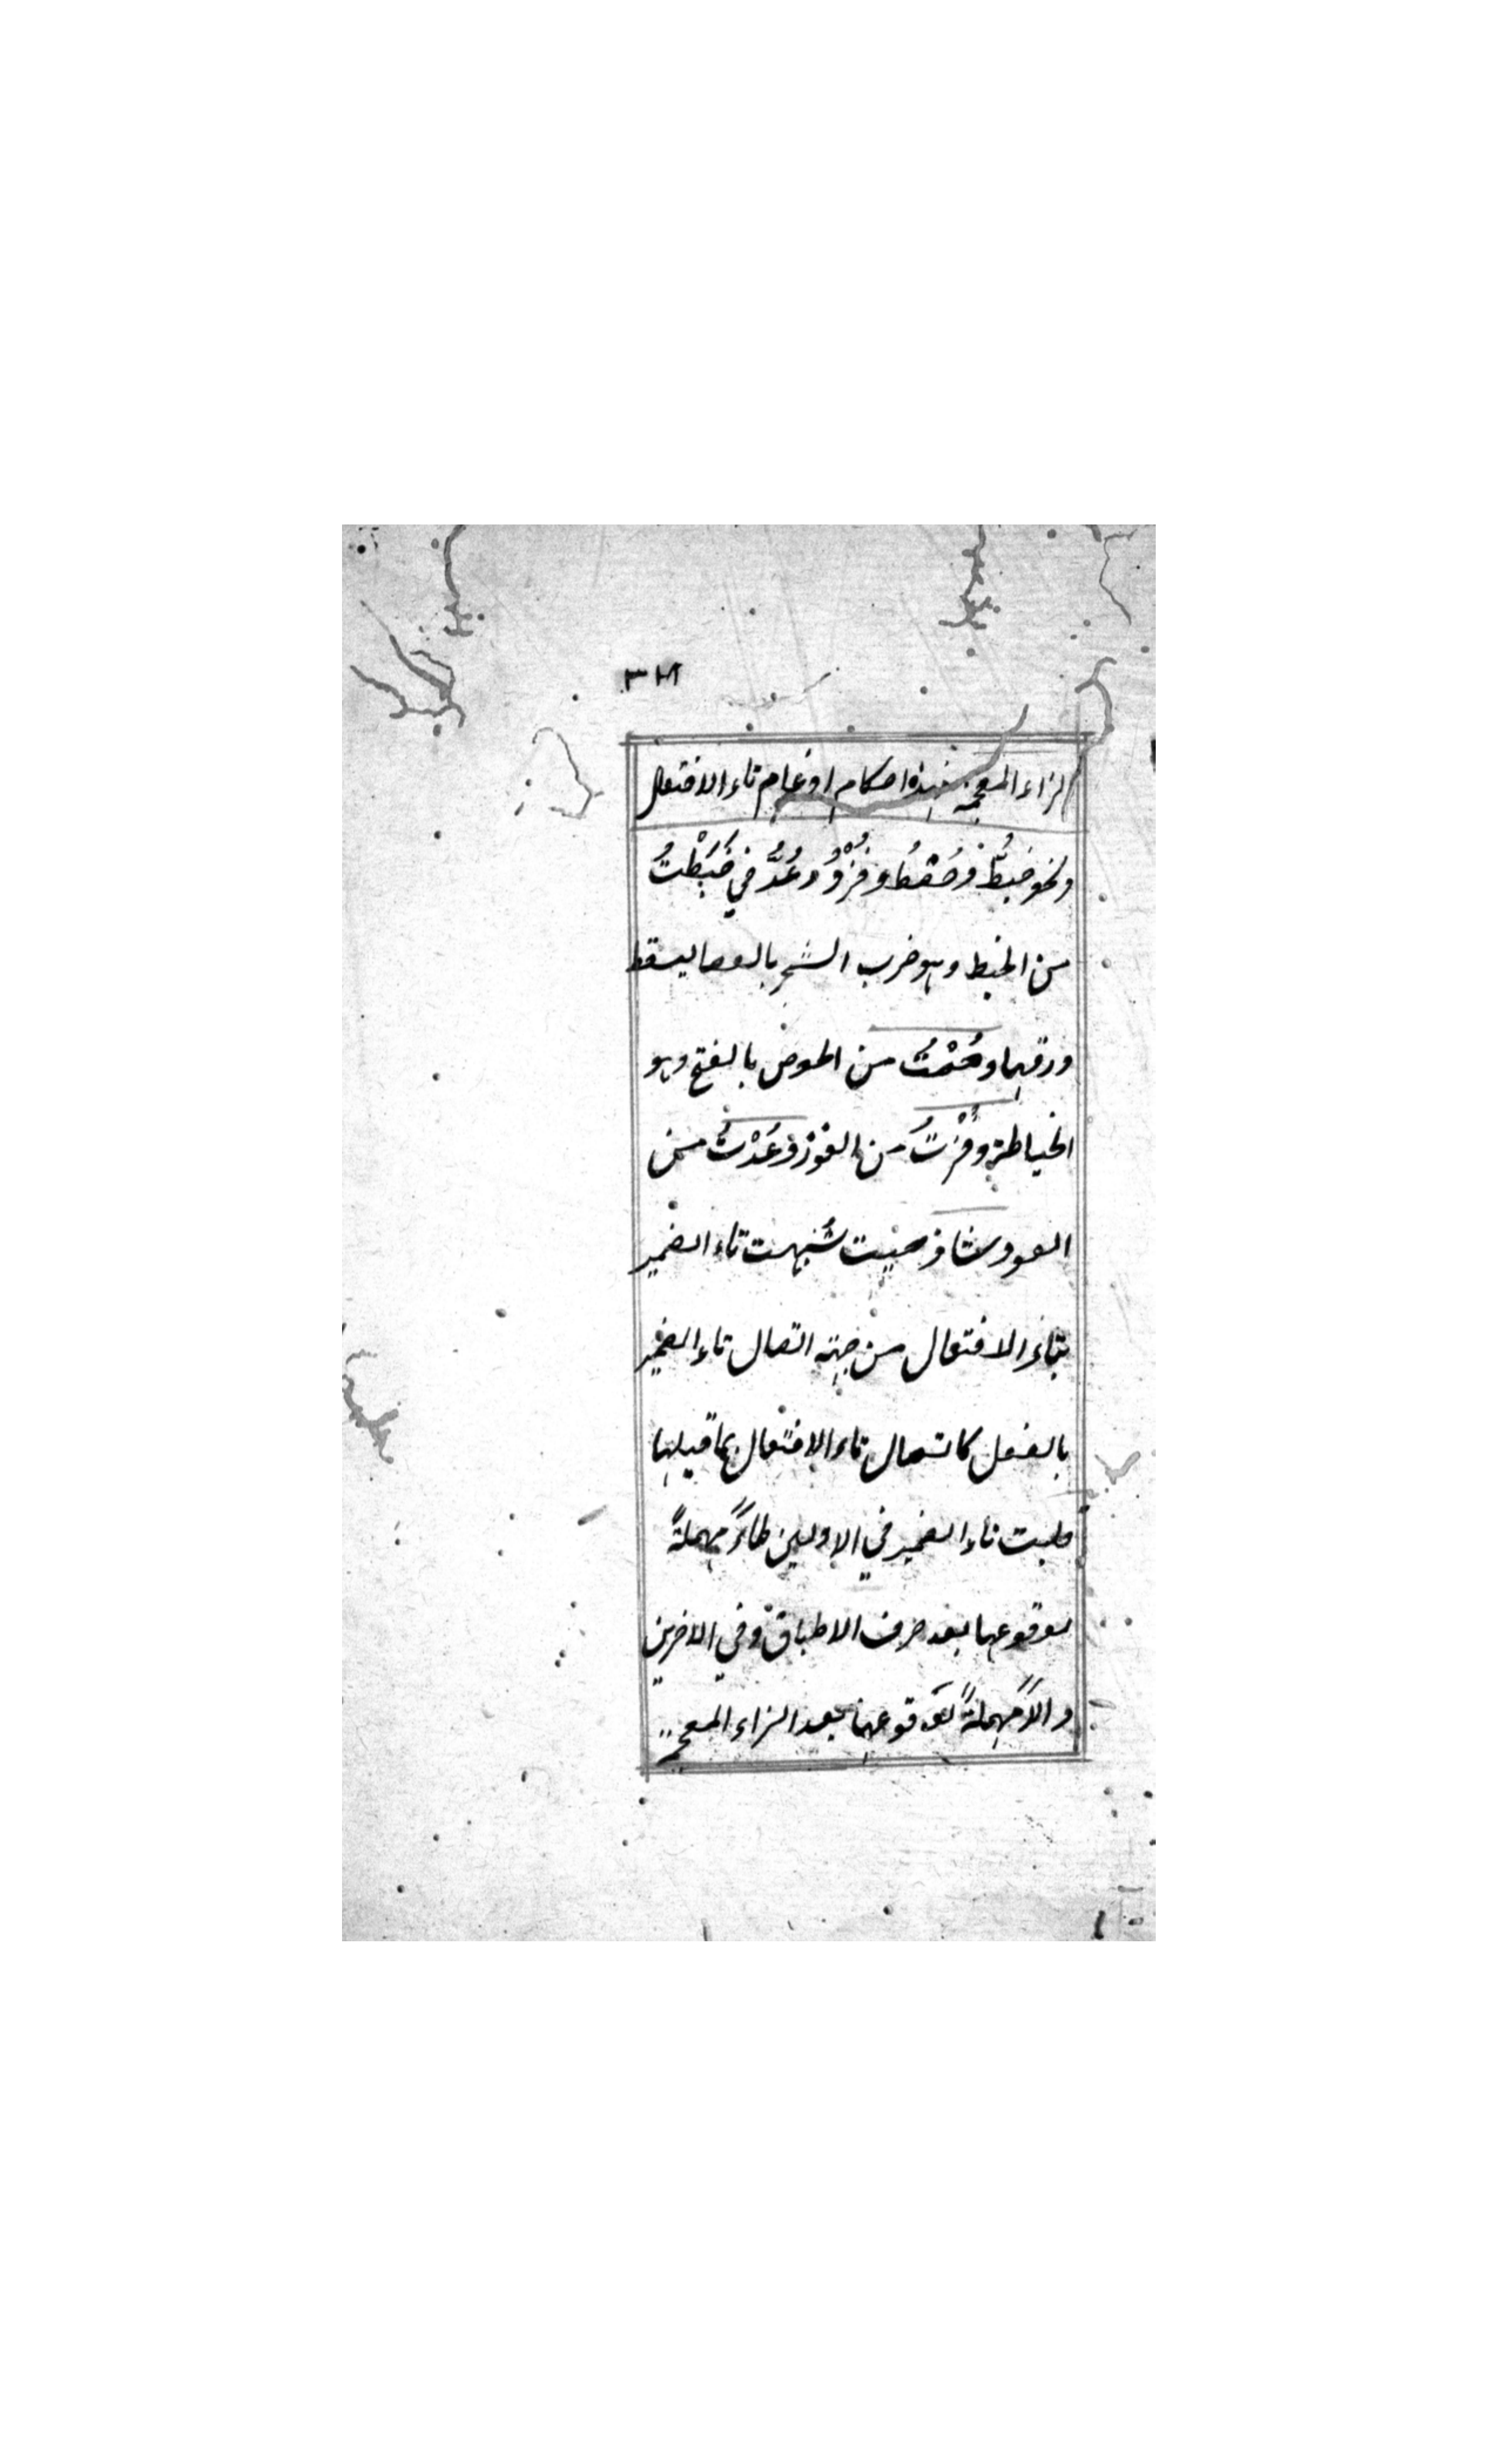 ٣٢٨
الزاء المعجمة فهذه احكام ادغام تاء الافتعال
ونحو خَبَطُّ وحُصْطُ وفُزْدُ وعُدُّ في خَبَطْتُ
من الخبط وهو ضرب الشجر بالعصا ليسقط
ورقها وحُصْتُ من الحوص بالفتح وهو
الخياطة وفُزْتُ من الفوز وعُدْتُ من
العود شاذ حيث شُبِّهت تاء الضمير
بتاء الافتعال من جهة اتصال تاء الضمير
بالفعل كاتصال تاء الافتعال بما قبلها
قلبت تاء الضمير في الاوليين طاءً مهملةً
لوقوعها بعد حرف الاطباق وفي الاخرين
دالًا مهملةً لوقوعها بعد الزاء المعجمة